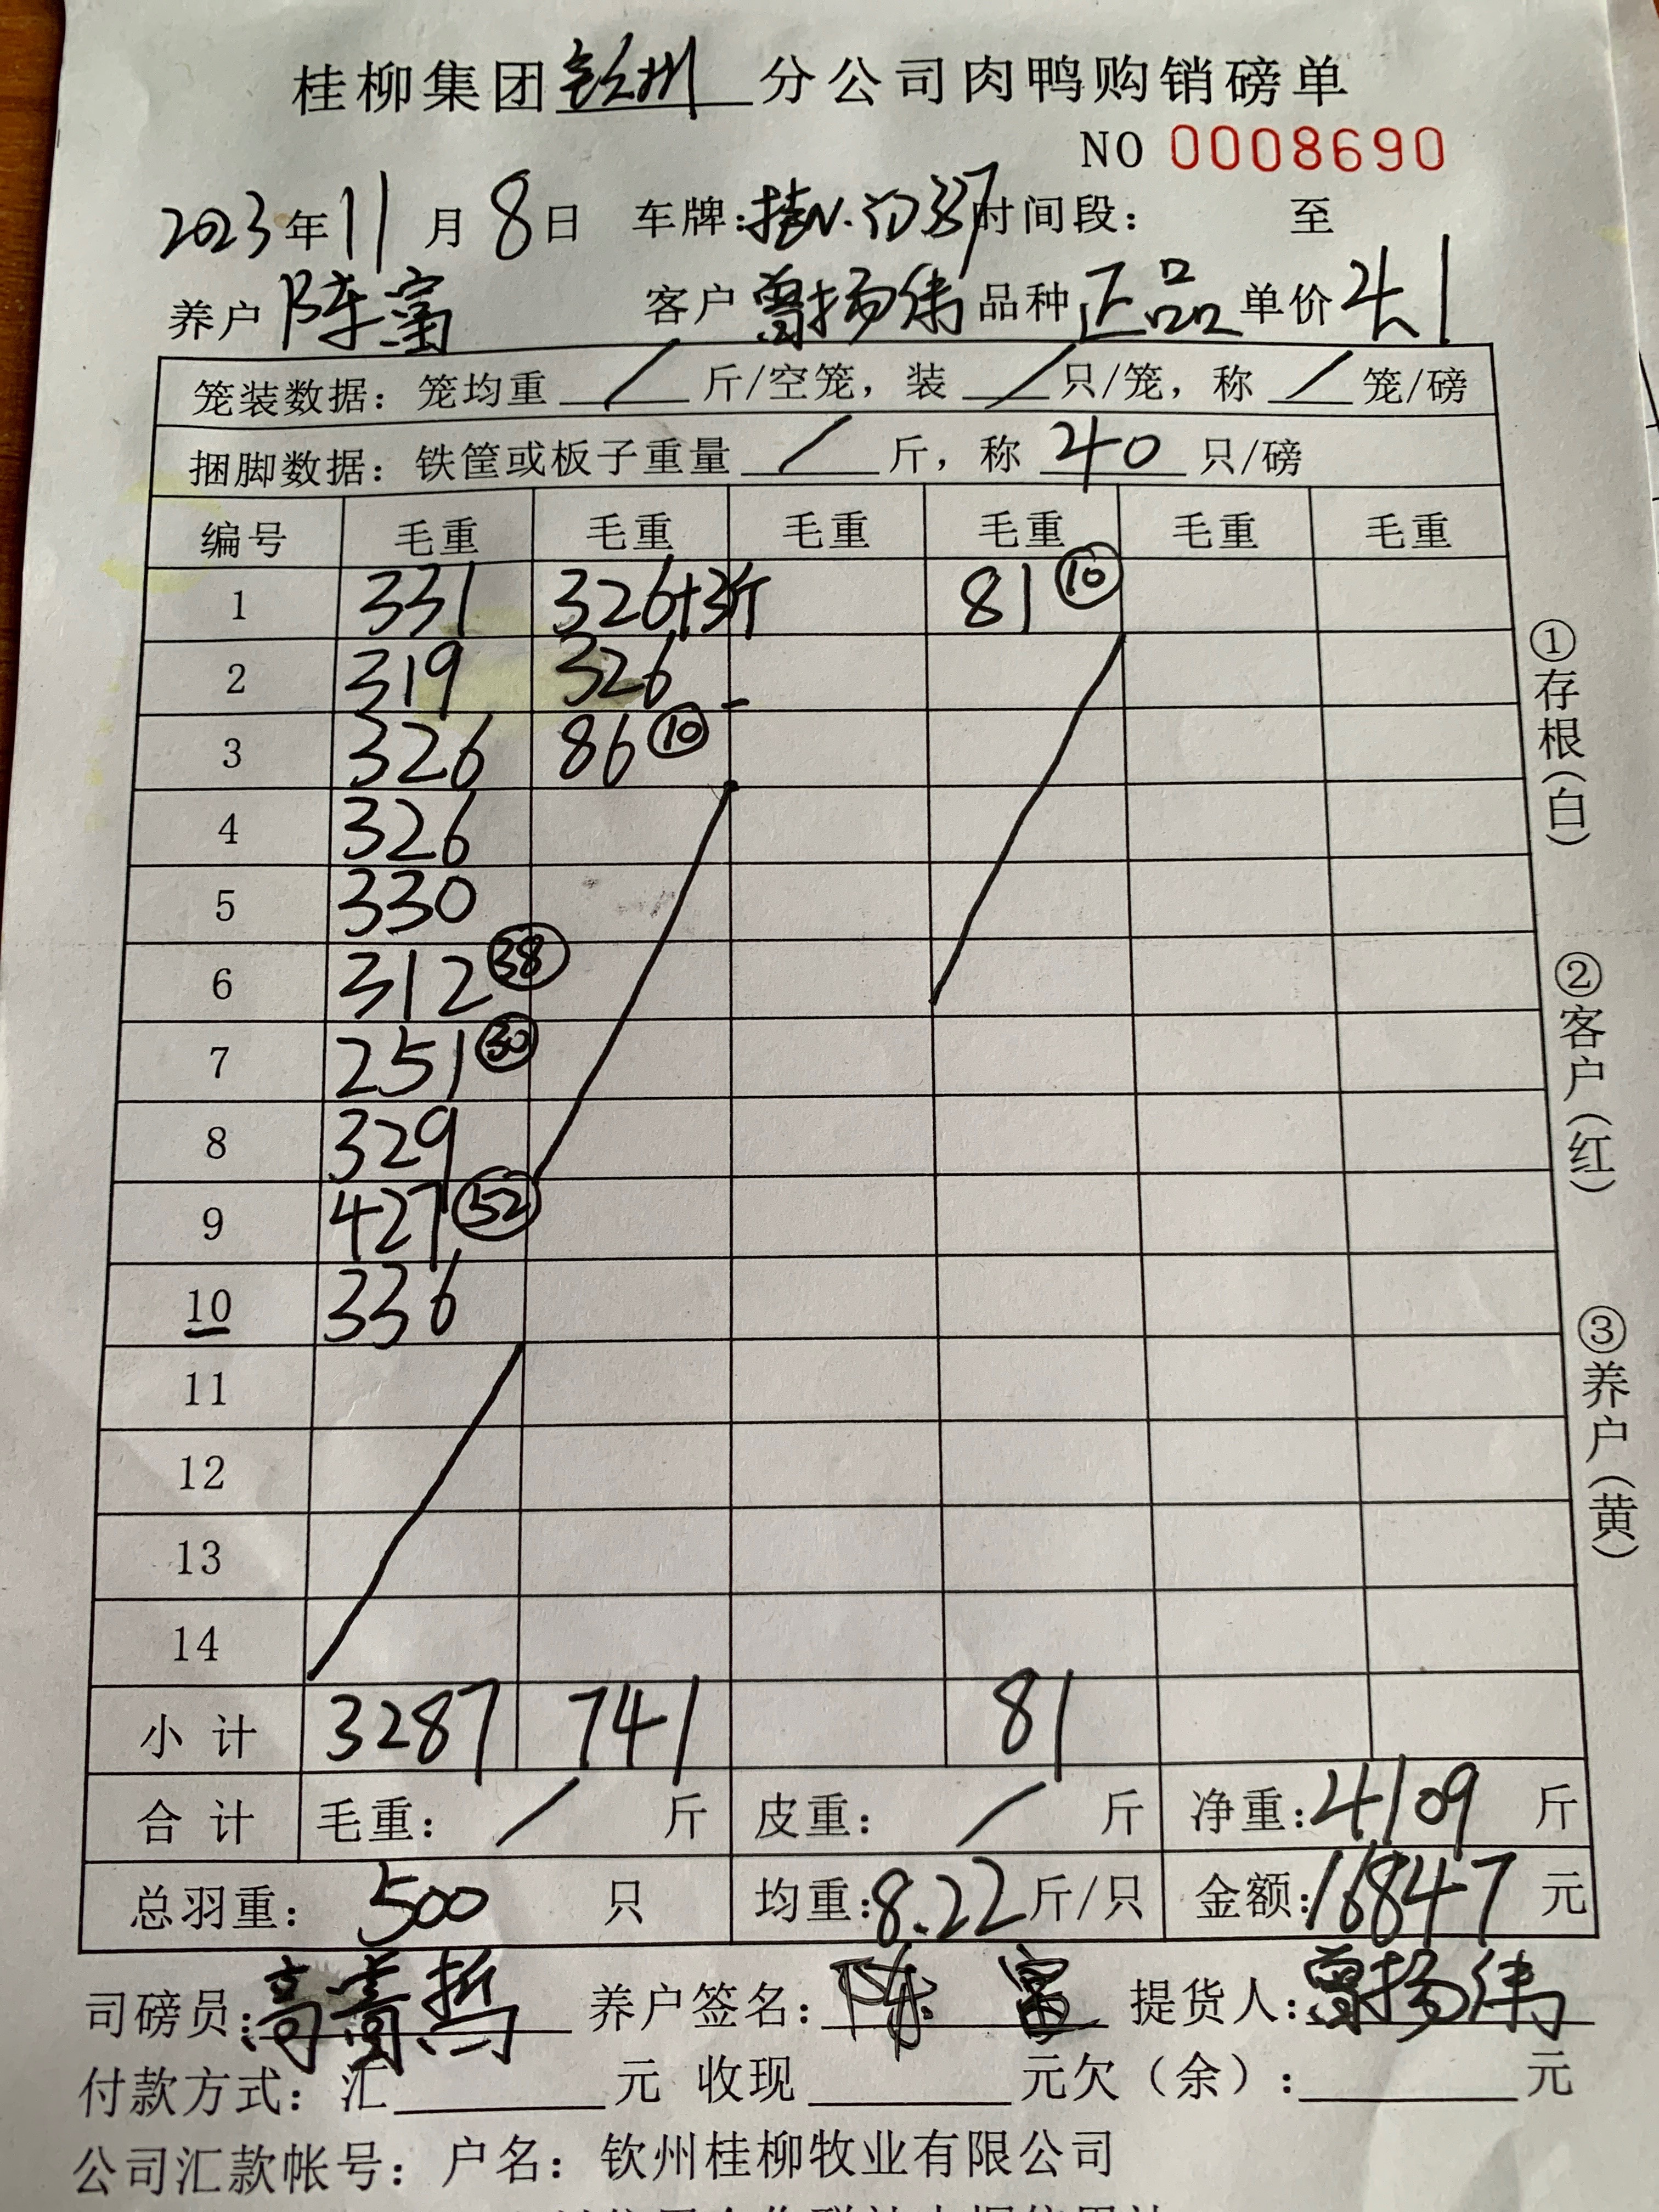 桂柳集团钦州分公司肉鸭购销磅单
NO 0008690
2023年11月8日 车牌: 时间段: 至
养户 陈富 客户 曾扬伟 品种 正品 单价 4.1
笼装数据: 笼均重 / 斤/空笼, 装 / 只/笼, 称 / 笼/磅
捆脚数据: 铁筐或板子重量 / 斤, 称 40 只/磅
编号 毛重 毛重 毛重 毛重 毛重 毛重
1 331 326+3斤 81 ⑩
2 319 326
3 326 86 ⑩
4 326
5 330
6 312 ㊳
7 251 ㉚
8 329
9 427 52
10 336
11
12
13
14
小计 3287 741 81
合计 毛重: / 斤 皮重: / 斤 净重: 4109 斤
总羽重: 500 只 均重: 8.22 斤/只 金额: 16847 元
司磅员: 高 养户签名: 陈富 提货人: 曾扬伟
付款方式: 汇 元 收现 元欠(余): 元
公司汇款帐号: 户名: 钦州桂柳牧业有限公司
①存根(白)
②客户(红)
③养户(黄)